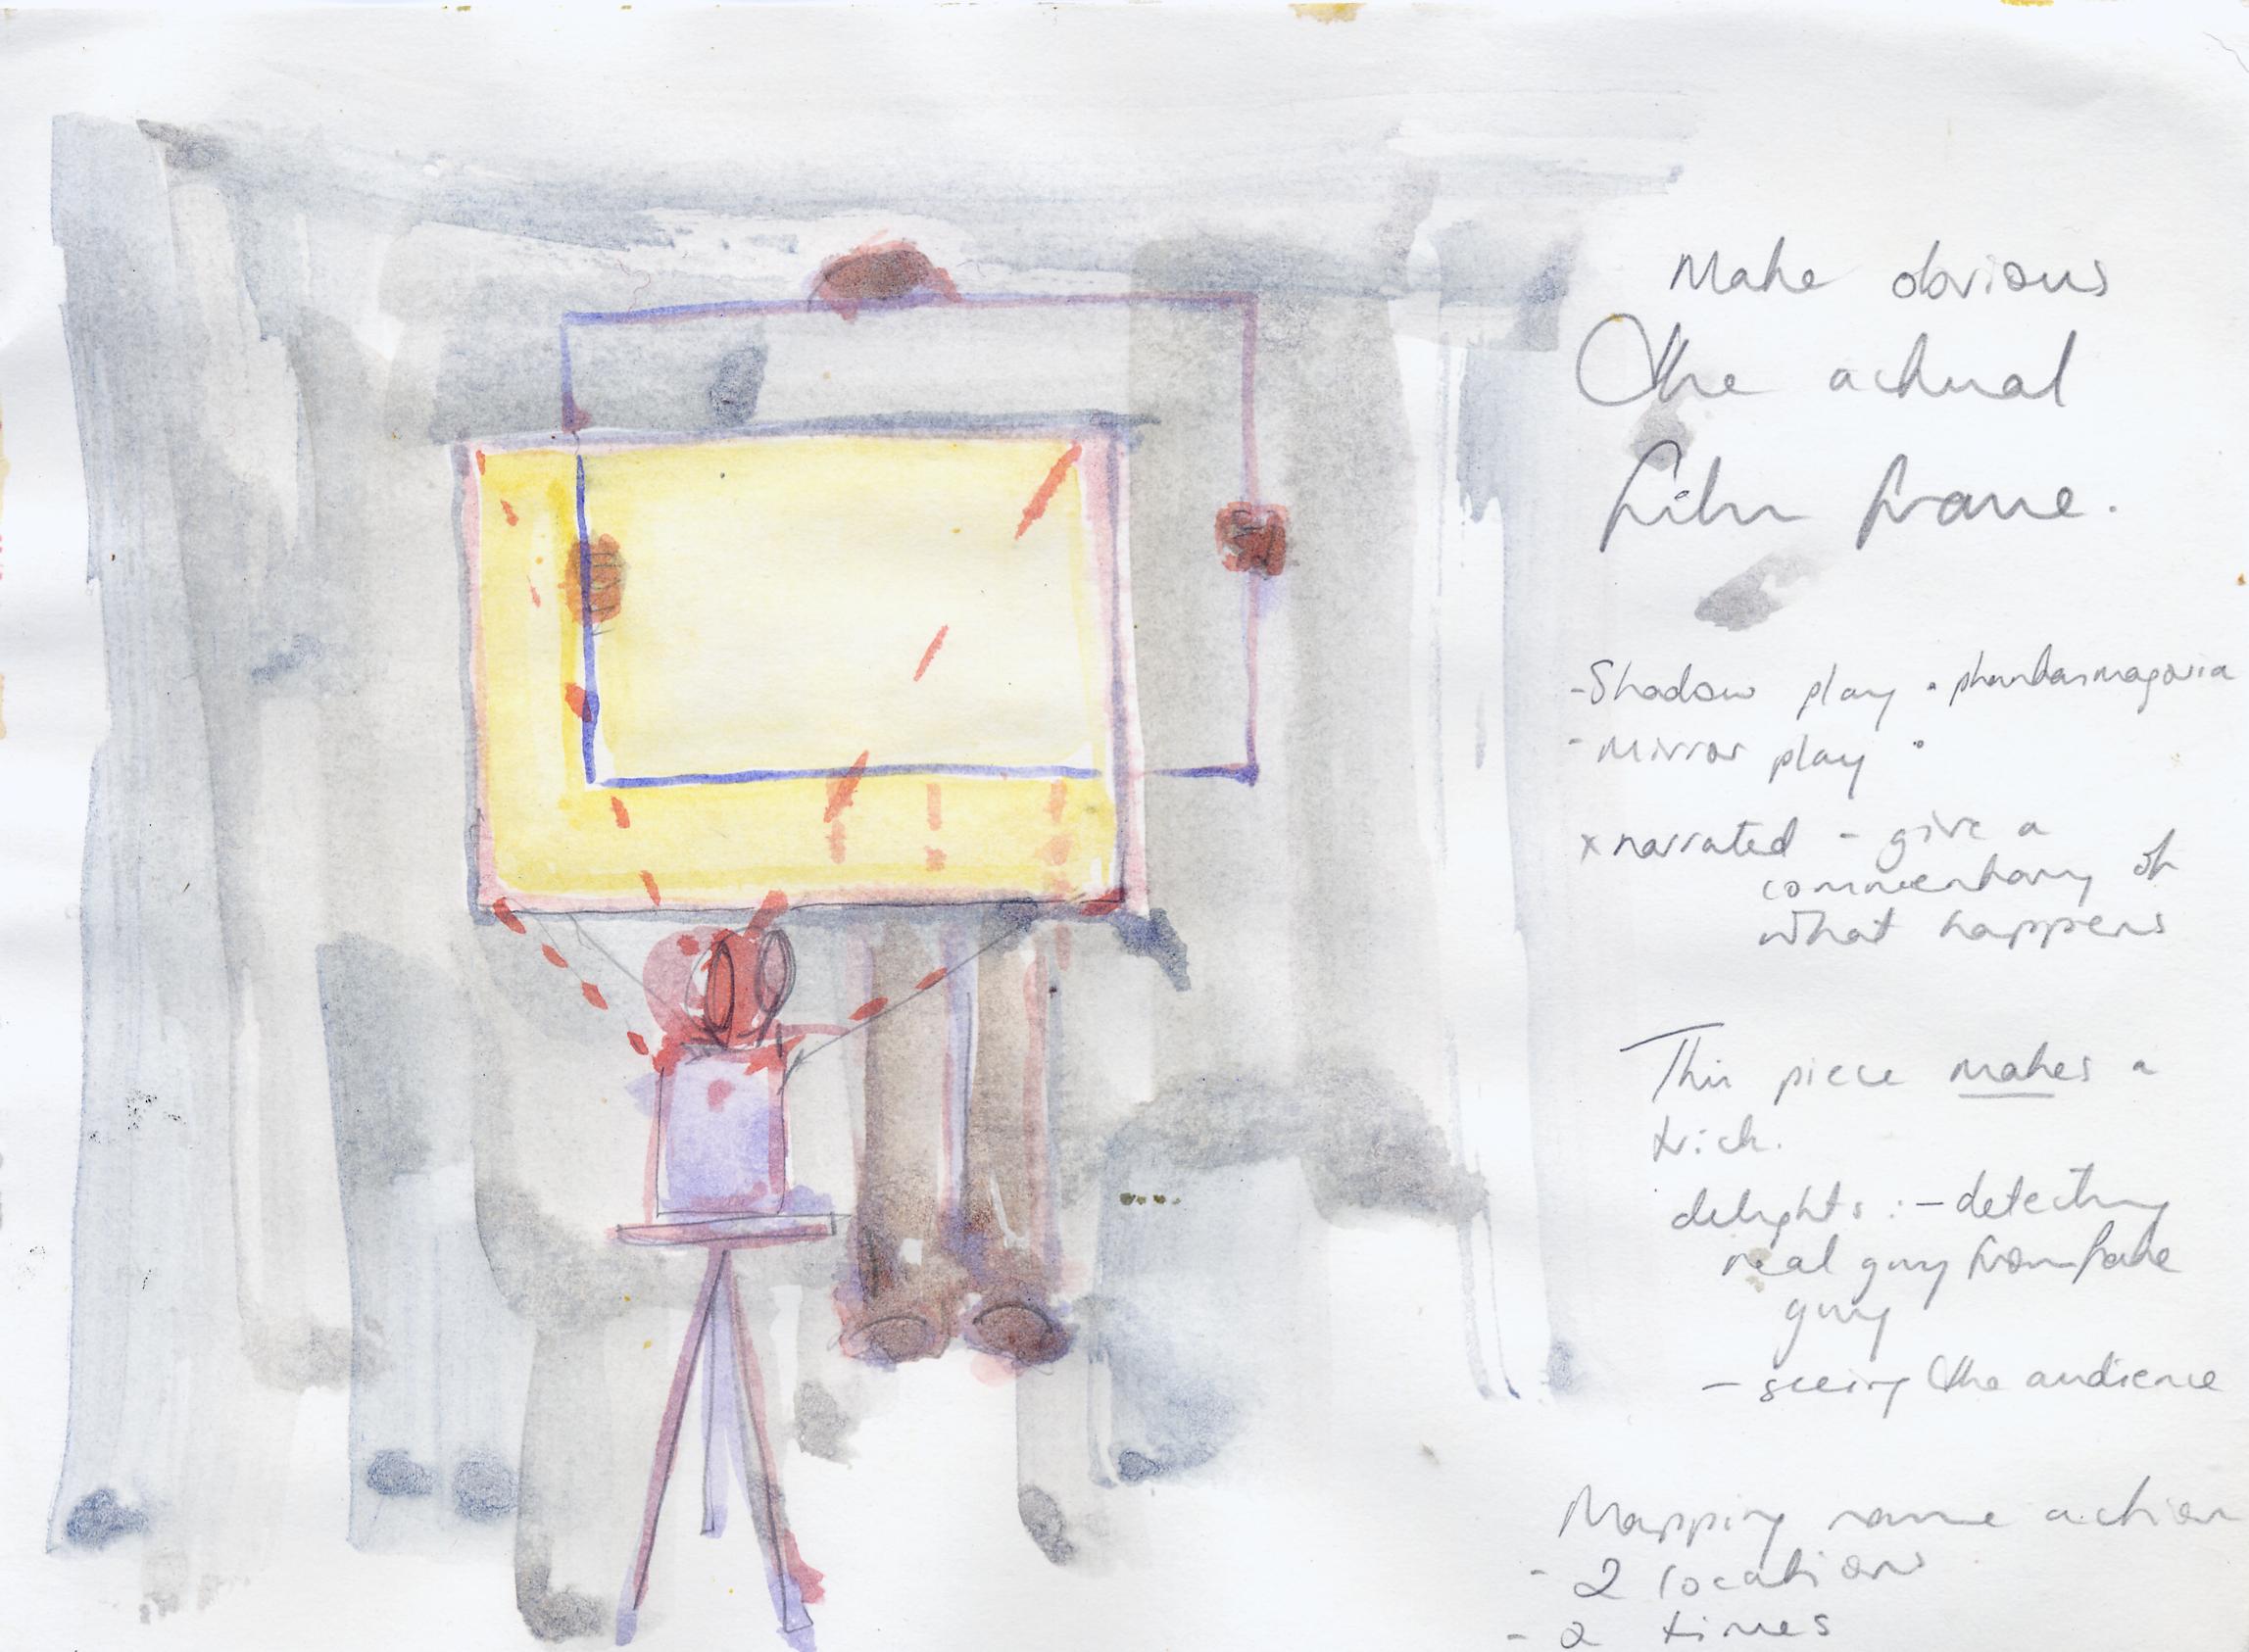 Make obvious
the actual
film frame.
- Shadow play • phantasmagoria
- mirror play •
x narrated - give a
commentary of
what happens
This piece makes a
trick.
delights : - detecting
real guy from fake
guy
- seeing the audience
Mapping same action
- 2 locations
- 2 times